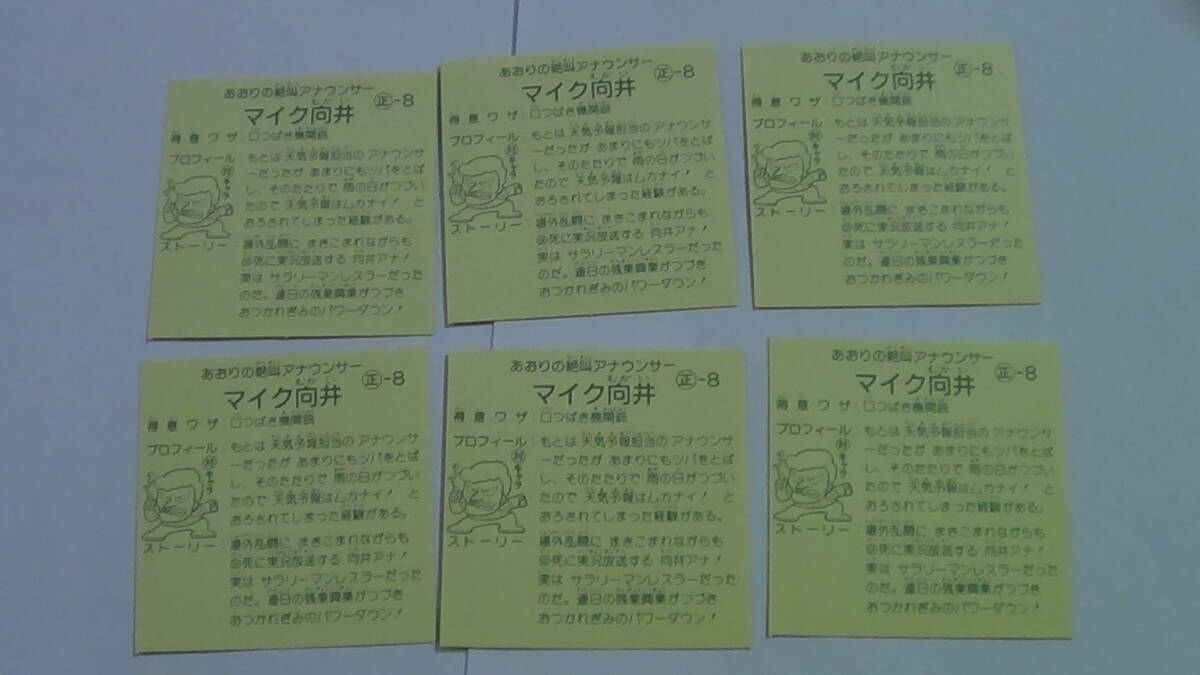 あおりの絶叫アナウンサー
マイク向井 正-8
むかい
得意ワザ:口つばき機関銃
プロフィール:もとは 天気予報担当の アナウンサ
ーだったが あまりにもツバをとば
し、そのたたりで 雨の日がつづい
たので 天気予報はムカナイ! と
おろされてしまった経験がある。
対キャラ
ストーリー:場外乱闘に まきこまれながらも
必死に実況放送する 向井アナ!
実は サラリーマンレスラーだった
のだ。連日の残業興業がつづき
おつかれぎみのパワーダウン!
あおりの絶叫アナウンサー
マイク向井 正-8
むかい
得意ワザ:口つばき機関銃
プロフィール:もとは 天気予報担当の アナウンサ
ーだったが あまりにもツバをとば
し、そのたたりで 雨の日がつづい
たので 天気予報はムカナイ! と
おろされてしまった経験がある。
対キャラ
ストーリー:場外乱闘に まきこまれながらも
必死に実況放送する 向井アナ!
実は サラリーマンレスラーだった
のだ。連日の残業興業がつづき
おつかれぎみのパワーダウン!
あおりの絶叫アナウンサー
マイク向井 正-8
むかい
得意ワザ:口つばき機関銃
プロフィール:もとは 天気予報担当の アナウンサ
ーだったが あまりにもツバをとば
し、そのたたりで 雨の日がつづい
たので 天気予報はムカナイ! と
おろされてしまった経験がある。
対キャラ
ストーリー:場外乱闘に まきこまれながらも
必死に実況放送する 向井アナ!
実は サラリーマンレスラーだった
のだ。連日の残業興業がつづき
おつかれぎみのパワーダウン!
あおりの絶叫アナウンサー
マイク向井 正-8
むかい
得意ワザ:口つばき機関銃
プロフィール:もとは 天気予報担当の アナウンサ
ーだったが あまりにもツバをとば
し、そのたたりで 雨の日がつづい
たので 天気予報はムカナイ! と
おろされてしまった経験がある。
対キャラ
ストーリー:場外乱闘に まきこまれながらも
必死に実況放送する 向井アナ!
実は サラリーマンレスラーだった
のだ。連日の残業興業がつづき
おつかれぎみのパワーダウン!
あおりの絶叫アナウンサー
マイク向井 正-8
むかい
得意ワザ:口つばき機関銃
プロフィール:もとは 天気予報担当の アナウンサ
ーだったが あまりにもツバをとば
し、そのたたりで 雨の日がつづい
たので 天気予報はムカナイ! と
おろされてしまった経験がある。
対キャラ
ストーリー:場外乱闘に まきこまれながらも
必死に実況放送する 向井アナ!
実は サラリーマンレスラーだった
のだ。連日の残業興業がつづき
おつかれぎみのパワーダウン!
あおりの絶叫アナウンサー
マイク向井 正-8
むかい
得意ワザ:口つばき機関銃
プロフィール:もとは 天気予報担当の アナウンサ
ーだったが あまりにもツバをとば
し、そのたたりで 雨の日がつづい
たので 天気予報はムカナイ! と
おろされてしまった経験がある。
対キャラ
ストーリー:場外乱闘に まきこまれながらも
必死に実況放送する 向井アナ!
実は サラリーマンレスラーだった
のだ。連日の残業興業がつづき
おつかれぎみのパワーダウン!